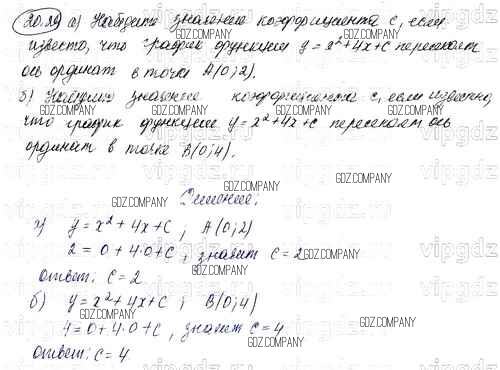 20.29 а) Найдите значение коэффициента c, если
известно, что график функции y = x² + 4x + c пересекает
ось ординат в точке A(0;2).
б) Найдите значение коэффициента c, если известно,
что график функции y = x² + 4x + c пересекает ось
ординат в точке B(0;4).
Решение:
а) y = x² + 4x + c ; A(0;2)
2 = 0 + 4·0 + c , значит c = 2
ответ: c = 2
б) y = x² + 4x + c ; B(0;4)
4 = 0 + 4·0 + c , значит c = 4
ответ: c = 4